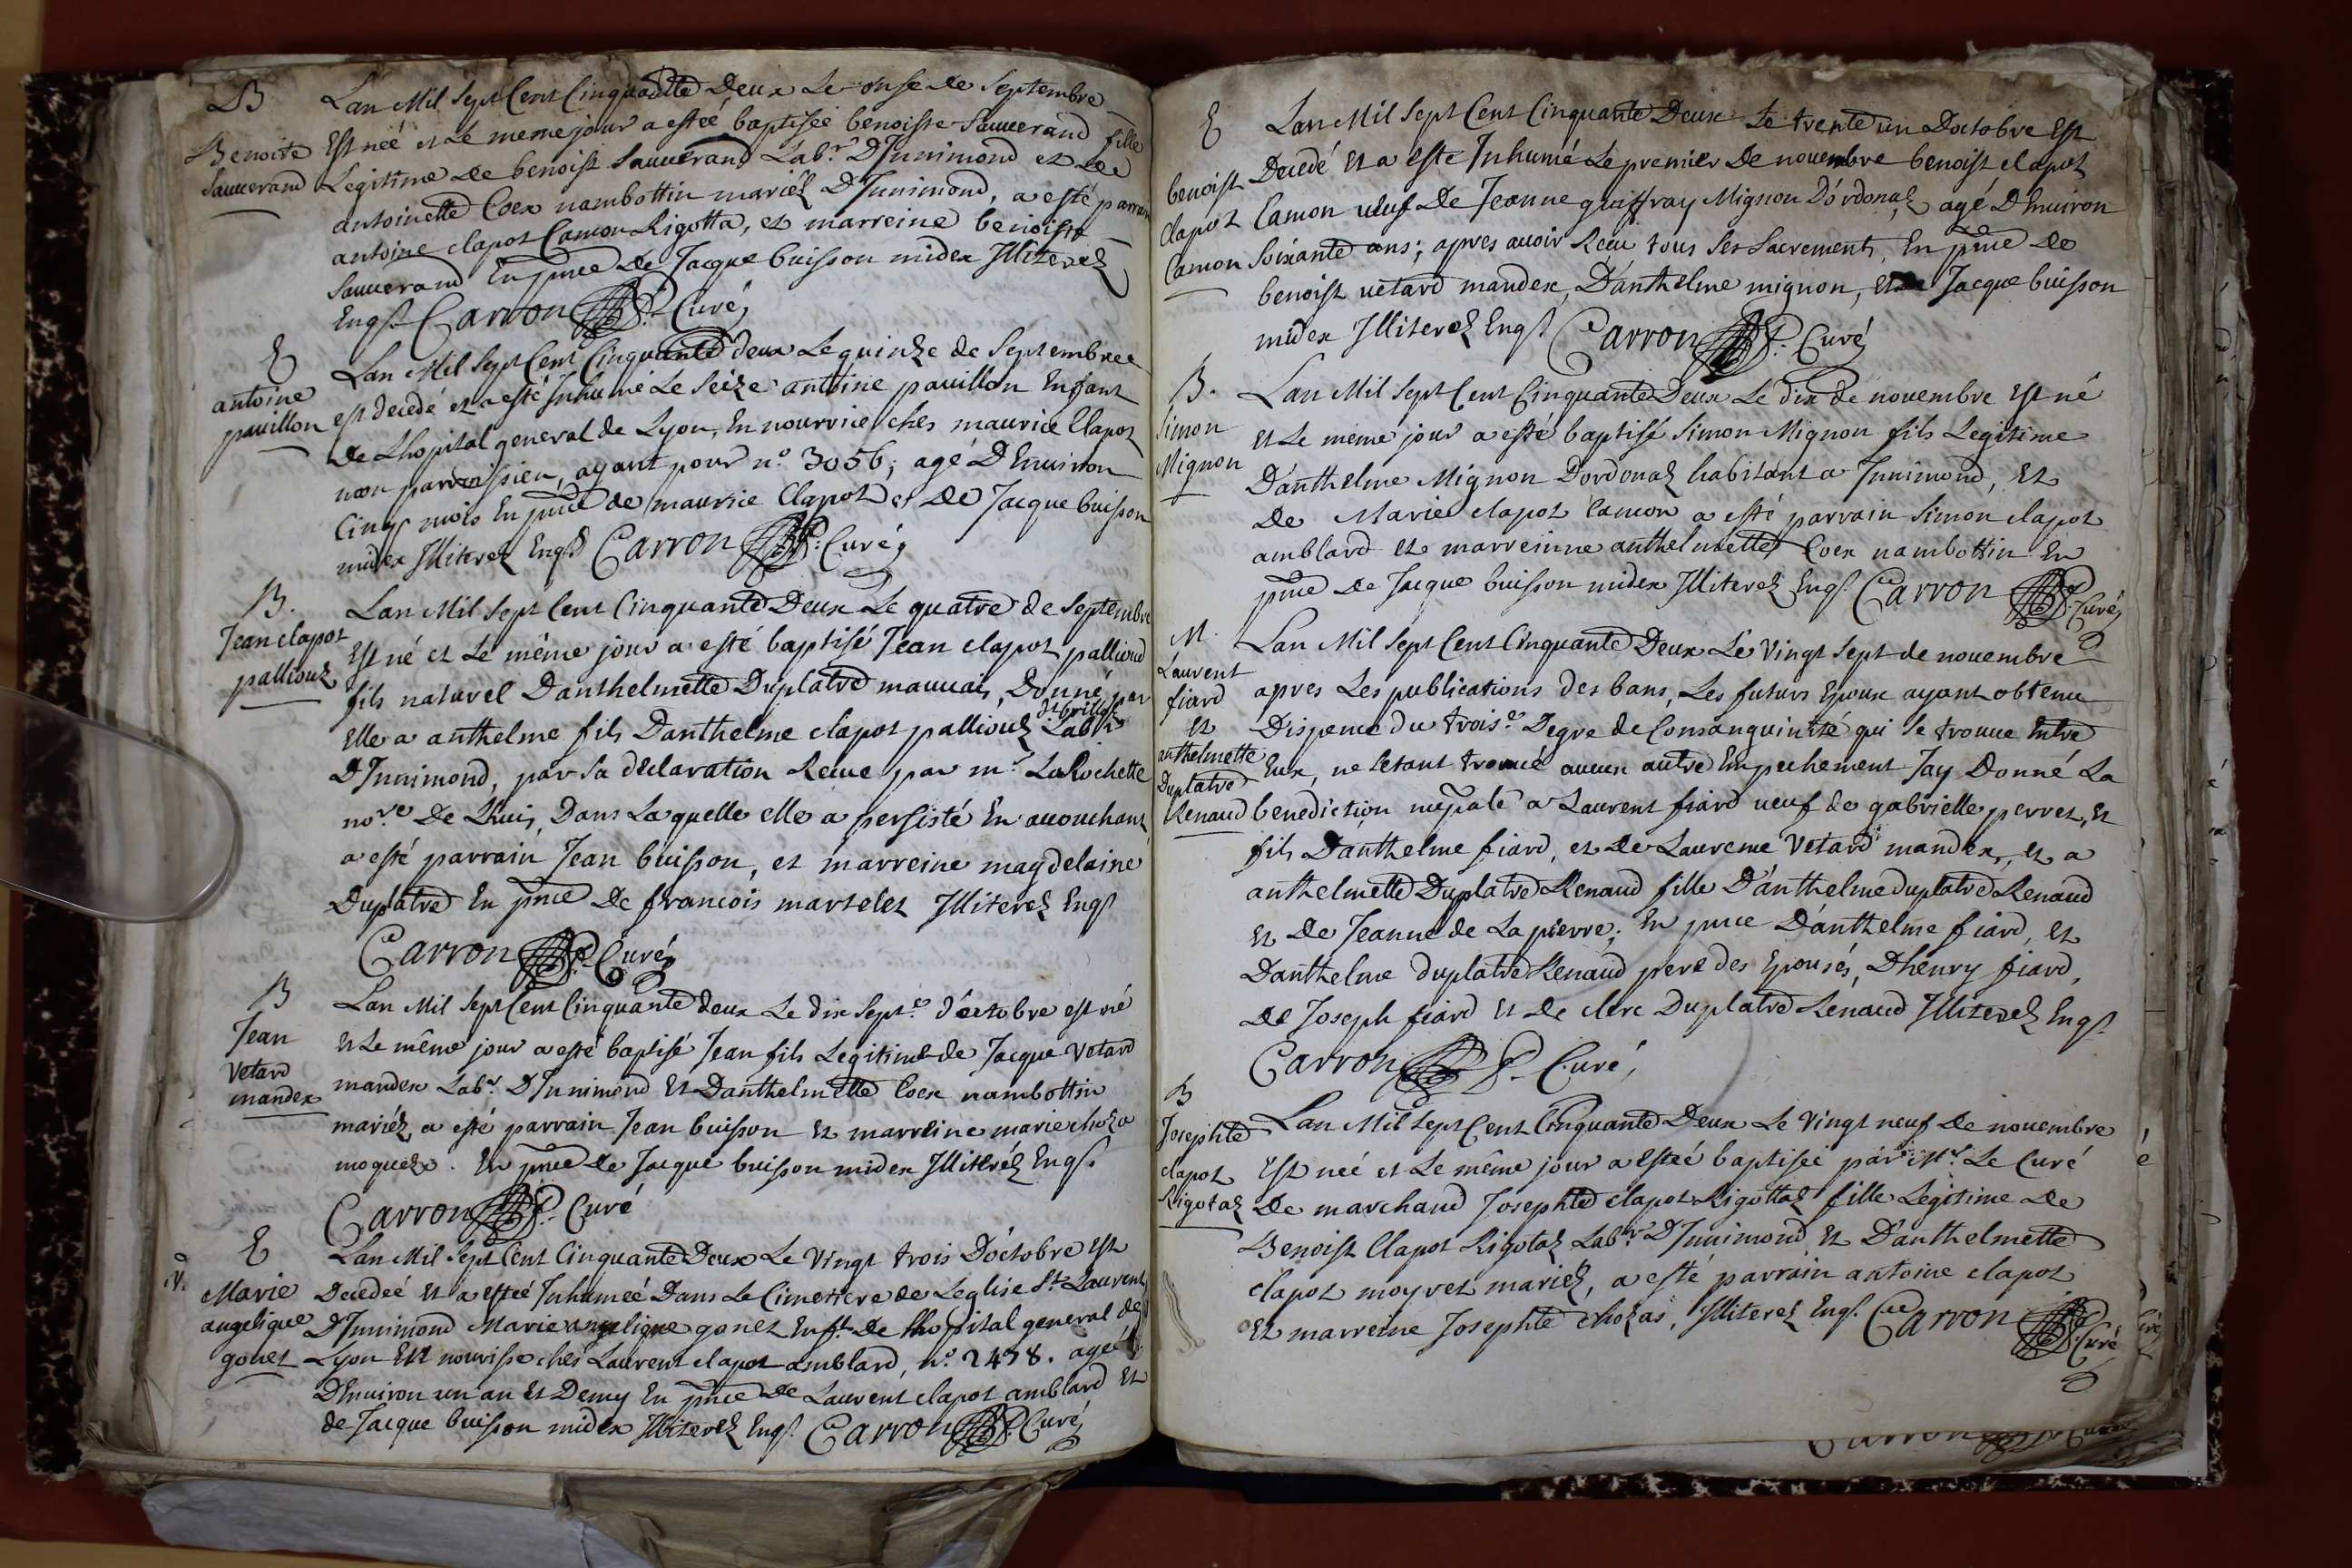 B
Benoite
Sauuerand
Lan Mil Sept Cent Cinquante Deux Le onse de Septembre
Est neé et Le meme jour a esteé baptiseé benoiste Sauuerand fille
Legitime de benoist Sauuerand Lab.r D'Innimond et de
antoinette Coex nambottin mariéz D'Innimond, a esté parrain
antoine clapot Camon Rigotta, et marreine benoiste
Sauuerand En pnce de Jacque buisson midex Illiterez
Engst Carron P.r Curé,
E
antoine
pauillon
Lan Mil Sept Cent Cinquante deux Le quinze de Septembre
est decedé et a esté Inhumé Le Seize antoine pauillon Enfant
De Lhopital general de Lyon, En nourrice ches maurice Clapot
mon parroissien, ayant pour n.o 3056; agé D'Enuiron
Cinq mois En pnce de maurice Clapot et De Jacque buisson
midex Illiterez Engst Carron P.r Curé,
B.
Jean clapot
palliouz
Lan Mil Sept Cent Cinquante Deux Le quatre de Septembre
Est né et Le même jour a esté baptisé Jean clapot pallioud
fils naturel Danthelmette Duplatre mauuais, Donné par
Elle a anthelme fils Danthelme clapot palliouz Lab.rs
D'Innimond, par Sa déclaration Reçue par m.r LaRochette
no.re De Lhuis, Dans Laquelle elle a persisté En accouchant
a esté parrain Jean buisson, et marreine magdelaine
Duplatre En pnce De francois martelet Illiterez Engst
Carron P.r Curé,
B
Jean
Vetard
mandex
Lan Mil Sept Cent Cinquante deux Le dix Sept.e d'octobre est né
Et Le même jour a esté baptisé Jean fils Legitime de Jacque Vetard
mandex Lab.r D'Innimond Et Danthelmette Coex nambottin
mariéz a esté parrain Jean buisson Et marreine marie choza
moquet. En pnce de Jacque buisson midex Illiteréz Engst
Carron P.r Curé
E
Marie
angelique
gonet
Lan Mil Sept Cent Cinquante Deux Le Vingt trois D'octobre Est
Decedeé Et a esteé Inhumeé Dans Le Cimetiere de Leglise St. Laurent
D'Innimond Marie angelique gonet Enft. De Lhopital general de
Lyon En nourisse chés Laurent clapot amblard, n.o 2478. ageé
D'Enuiron un an Et Demy En pnce De Laurent clapot amblard Et
de Jacque buisson midex Illiterez Engst Carron P.r Curé
E
benoist
clapot
Camon
Lan Mil Sept Cent Cinquante Deux Le trente un Doctobre Est
Decedé Et a este Inhumé Le premier De nouembre benoist clapot
Camon ueuf De Jeanne guiffray Mignon D'ordonaz agé D'Enuiron
Soixante ans; apres auoir Reçu tous Ses Sacrements, En pnce de
benoist uetard mandex, D'anthelme mignon, Et Jacque buisson
midex Illiterez Engst Carron P.r Curé
B.
Simon
Mignon
Lan Mil Sept Cent Cinquante Deux Le Dix de nouembre Est né
Et Le meme jour a esté baptisé Simon Mignon fils Legitime
D'anthelme Mignon Dordonaz habitant a Innimond, Et
De Marie clapot Camon a esté parrain Simon clapot
amblard Et marreinne anthelmette Coex nambottin En
pnce De Jacque buisson midex Illiterez Engst Carron P.r Curé
M.
Laurent
fiard
Et
anthelmette
Duplatre
Renaud
Lan Mil Sept Cent Cinquante Deux Le Vingt Sept de nouembre
apres Les publications des bans, Les futurs Epoux ayant obtenu
Dispence du trois.e Degre de Consanguinité qui Se trouue Entre
Eux, ne Setant trouué aucun autre Empechement Jay Donné La
benediction nuptiale a Laurent fiard ueuf de gabrielle perret, Et
fils D'anthelme fiard, et De Laurence Vetard mandex, Et a
anthelmette Duplatre Renaud fille D'anthelme duplatre Renaud
Et De Jeanne de La pierre; En pnce D'anthelme fiard, Et
Danthelme duplatre Renaud pere des Epousés, Dhenry fiard,
De Joseph fiard Et De clerc Duplatre Renaud Illiterez Engst
Carron P.r Curé,
B
Josephte
clapot
Rigotaz
Lan Mil Sept Cent Cinquante Deux Le Vingt neuf De nouembre
Est neé et Le même jour a esteé baptiseé par Mr. Le Curé
De marchand Josephte clapot Rigottaz fille Legitime De
Benoist Clapot Rigotaz Lab.r D'Innimond, Et D'anthelmette
clapot moyret mariéz, a esté parrain antoine clapot
Et marreine Josephte chozas, Illiterez Engst Carron P.r Curé